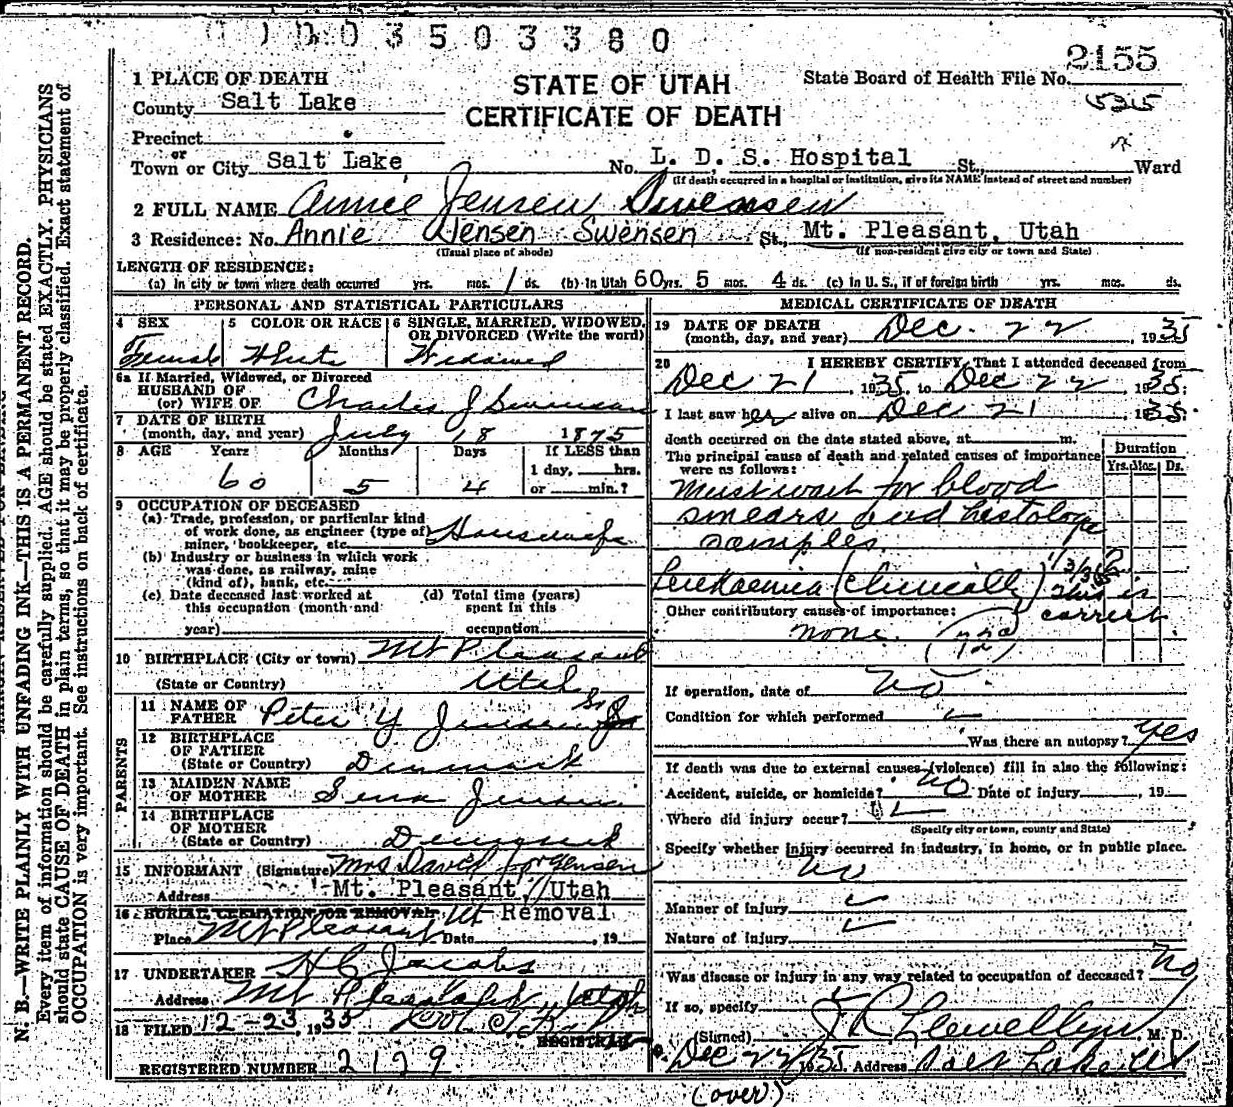 0 3 5 0 3 3 8 0
2155
1 PLACE OF DEATH
STATE OF UTAH
CERTIFICATE OF DEATH
State Board of Health File No.
County Salt Lake
Precinct
Town or City Salt Lake No. L. D. S. Hospital St., Ward
(If death occurred in a hospital or institution, give its NAME instead of street and number)
2 FULL NAME Annie Jensen Swensen
3 Residence: No. Annie Jensen Swensen St., Mt. Pleasant, Utah
(Usual place of abode) (If non-resident give city or town and State)
LENGTH OF RESIDENCE:
(a) In city or town where death occurred yrs. mos. 1 ds. (b) In Utah 60 yrs. 5 mos. 4 ds. (c) in U. S., if of foreign birth yrs. mos. ds.
PERSONAL AND STATISTICAL PARTICULARS
4 SEX Female
5 COLOR OR RACE White
6 SINGLE, MARRIED, WIDOWED, OR DIVORCED (Write the word) Widowed
6a If Married, Widowed, or Divorced
HUSBAND OF
(or) WIFE OF Charles J Swensen
7 DATE OF BIRTH
(month, day, and year) July 18 1875
8 AGE Years 60 Months 5 Days 4 If LESS than
1 day, hrs.
or min.?
9 OCCUPATION OF DECEASED
(a) Trade, profession, or particular kind
of work done, as engineer (type of)
miner, bookkeeper, etc. Housewife
(b) Industry or business in which work
was done, as railway, mine
(kind of), bank, etc.
(c) Date deceased last worked at
this occupation (month and
year)
(d) Total time (years)
spent in this
occupation
10 BIRTHPLACE (City or town) Mt Pleasant
(State or Country) Utah
PARENTS
11 NAME OF
FATHER Peter Y Jensen Sr
12 BIRTHPLACE
OF FATHER
(State or Country) Denmark
13 MAIDEN NAME
OF MOTHER Sena Jensen
14 BIRTHPLACE
OF MOTHER
(State or Country) Denmark
15 INFORMANT (Signature) Mrs David Jorgensen
Address Mt. Pleasant, Utah
16 BURIAL, CREMATION OR REMOVAL Removal
Place Mt Pleasant Ut Date , 19
17 UNDERTAKER H C Jacobs
Address Mt Pleasant, Utah
18 FILED 12-23, 1935
REGISTRAR
REGISTERED NUMBER 2129
MEDICAL CERTIFICATE OF DEATH
19 DATE OF DEATH
(month, day, and year) Dec. 22, 1935
20 I HEREBY CERTIFY, That I attended deceased from
Dec 21, 1935 to Dec 22, 1935.
I last saw her alive on Dec 21 1935.
death occurred on the date stated above, at m.
The principal cause of death and related causes of importance
were as follows:
Duration
Yrs. Mos. Ds.
Must wait for blood
smears and histologe
samples.
Leukaemia (Clinically) 1/3/36
This is
correct
Other contributory causes of importance:
none.
If operation, date of no
Condition for which performed
Was there an autopsy? Yes
If death was due to external causes (violence) fill in also the following:
Accident, suicide, or homicide? no Date of injury , 19
Where did injury occur?
(Specify city or town, county and State)
Specify whether injury occurred in industry, in home, or in public place.
no
Manner of injury
Nature of injury
Was disease or injury in any way related to occupation of deceased? No
If so, specify
(Signed) J R Llewellyn M. D.
Dec 22 1935. Address Salt Lake Ut
(over)
N. B.—WRITE PLAINLY WITH UNFADING INK—THIS IS A PERMANENT RECORD.
Every item of information should be carefully supplied. AGE should be stated EXACTLY. PHYSICIANS
should state CAUSE OF DEATH in plain terms, so that it may be properly classified. Exact statement of
OCCUPATION is very important. See instructions on back of certificate.